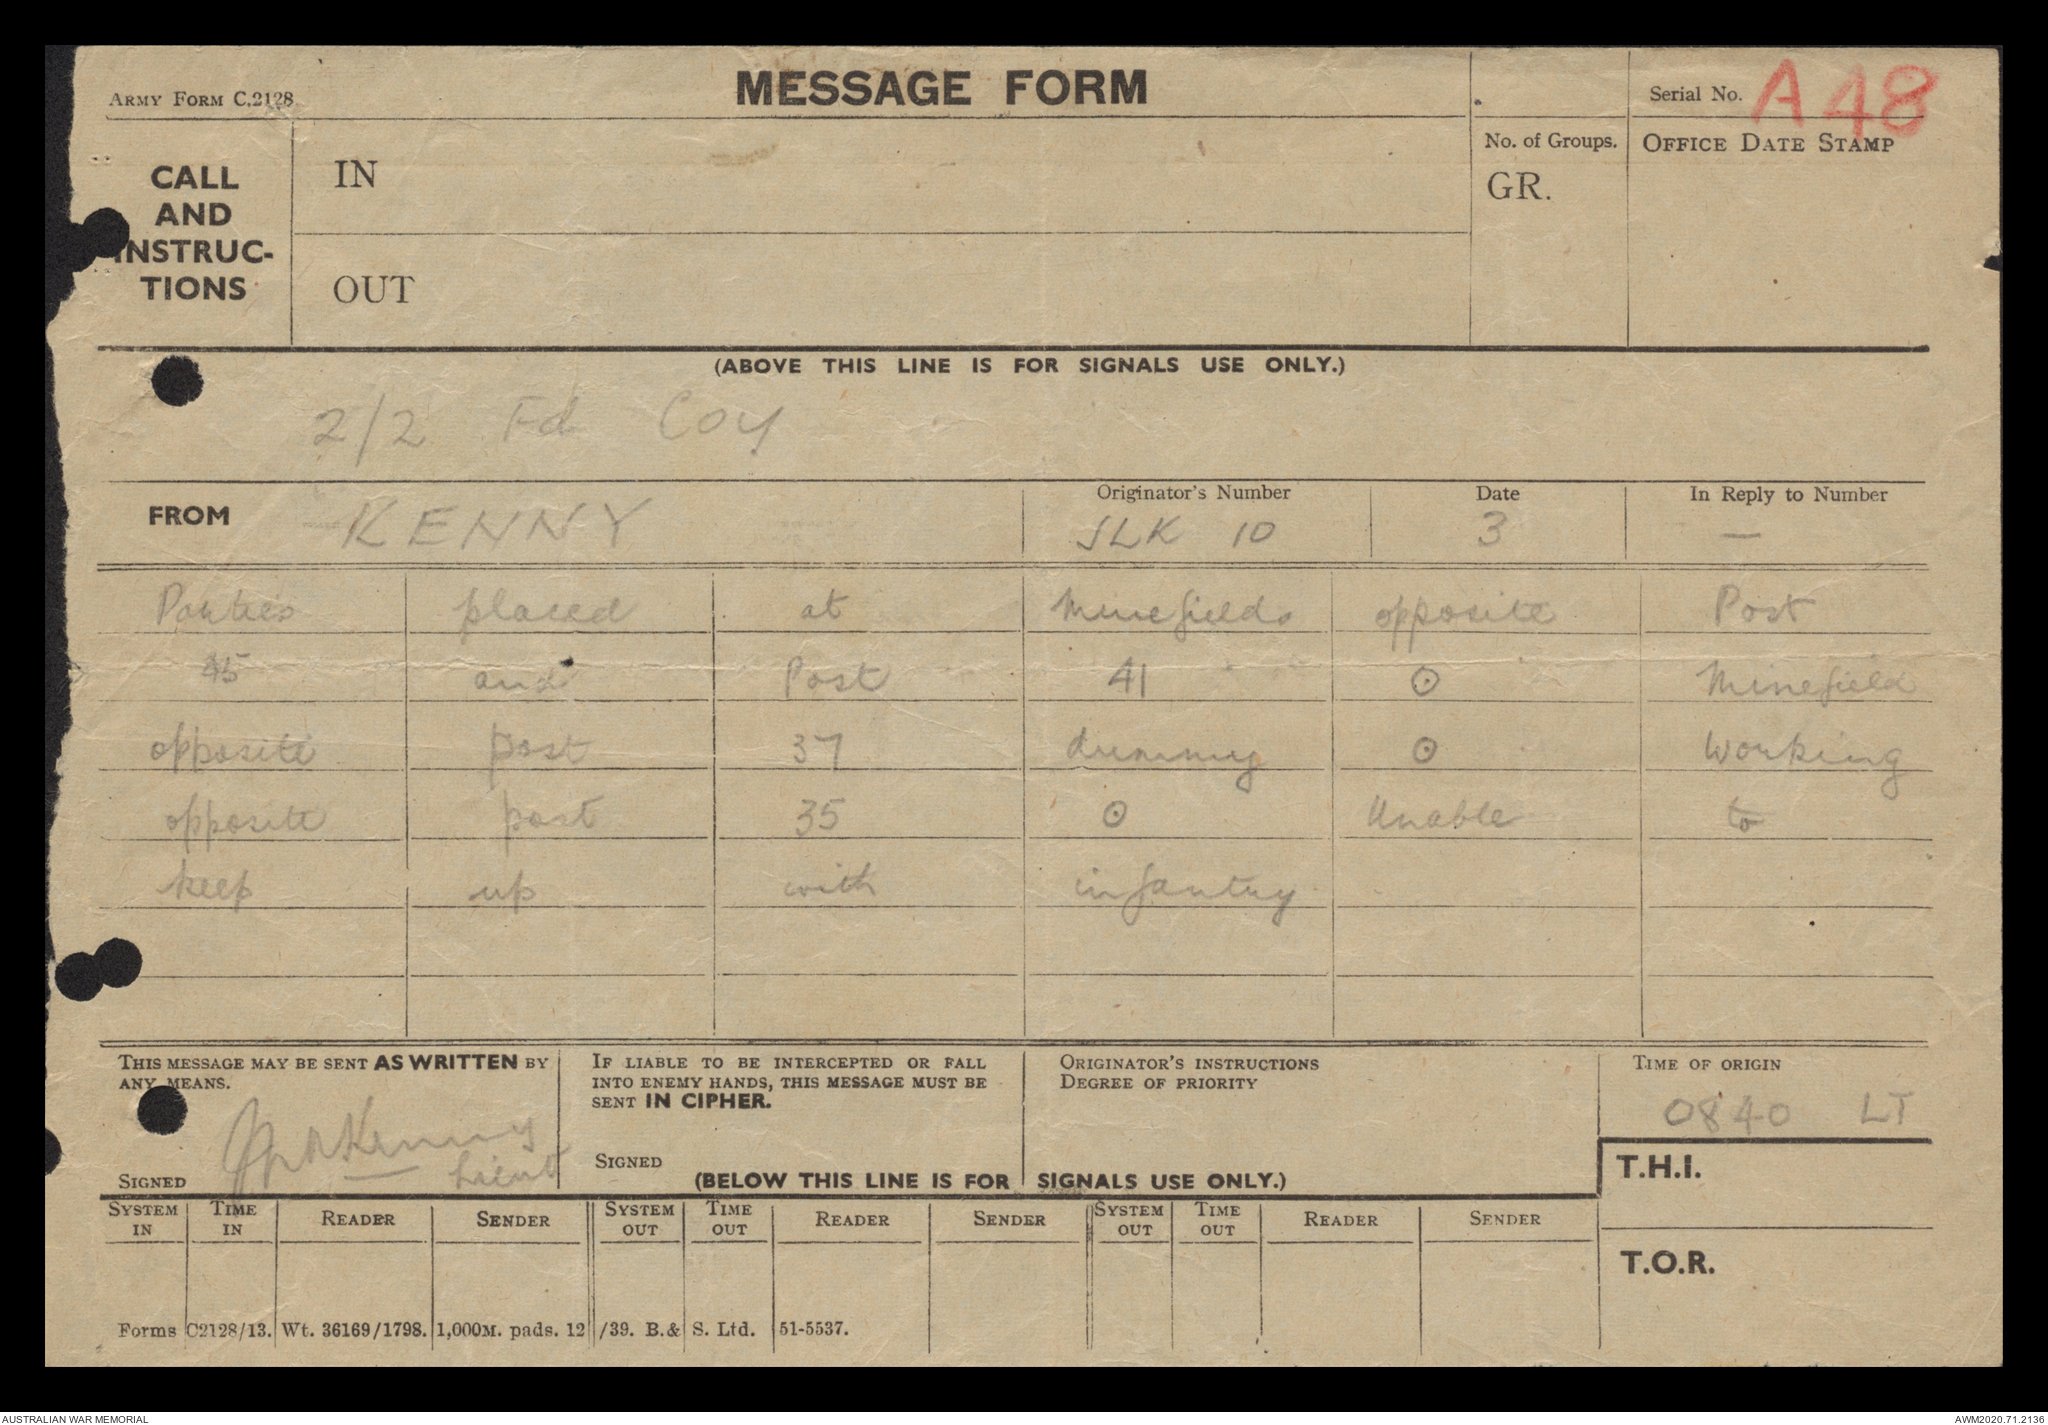 ARMY FORM C.2128
MESSAGE FORM
Serial No. A48
CALL AND INSTRUC-TIONS
IN
OUT
No. of Groups.
GR.
OFFICE DATE STAMP
(ABOVE THIS LINE IS FOR SIGNALS USE ONLY.)
2/2 Fd Coy
FROM KENNY
Originator's Number JLK 10
Date 3
In Reply to Number —
Parties placed at Minefields opposite Post
45 and Post 41 ⊙ Minefield
opposite post 37 dummy ⊙ Working
opposite post 35 ⊙ Unable to
keep up with infantry.
THIS MESSAGE MAY BE SENT AS WRITTEN BY ANY MEANS.
SIGNED Kenny Lieut
IF LIABLE TO BE INTERCEPTED OR FALL INTO ENEMY HANDS, THIS MESSAGE MUST BE SENT IN CIPHER.
SIGNED
ORIGINATOR'S INSTRUCTIONS
DEGREE OF PRIORITY
TIME OF ORIGIN
0840 LT
T.H.I.
T.O.R.
(BELOW THIS LINE IS FOR SIGNALS USE ONLY.)
SYSTEM IN TIME IN READER SENDER SYSTEM OUT TIME OUT READER SENDER SYSTEM OUT TIME OUT READER SENDER
Forms C2128/13. Wt. 36169/1798. 1,000M. pads. 12/39. B.& S. Ltd. 51-5537.
AUSTRALIAN WAR MEMORIAL
AWM2020.71.2136